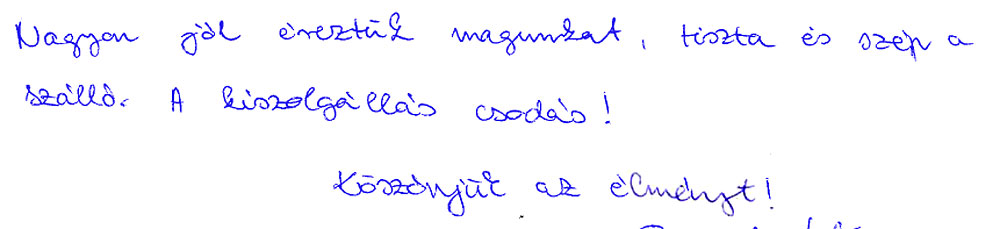 Nagyon jól éreztük magunkat, tiszta és szép a
szálló. A kiszolgállás csodás!
Köszönjük az élményt!